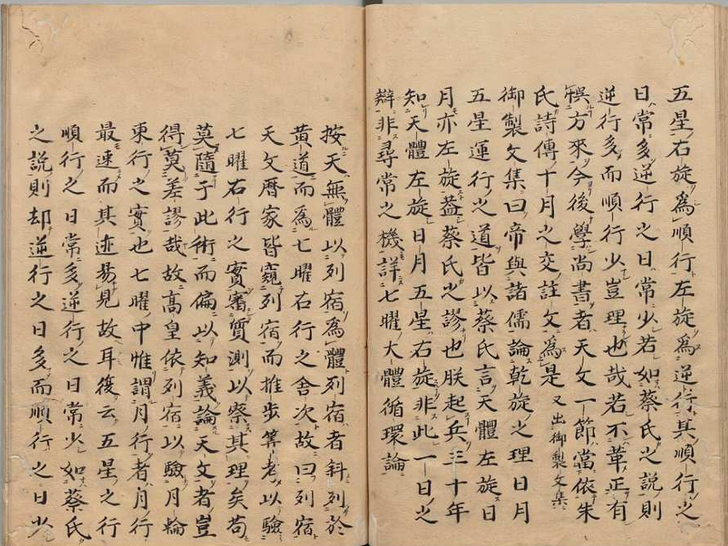 五星右旋為順行左旋為逆行其順行之
日常多逆行之日常少若如蔡氏之說則
逆行多而順行少豈理也哉若不革正有
悮方來今後學尚書者天文一節當依朱
氏詩傳十月之交註文為是又出御製文集
御製文集曰帝與諸儒論乾旋之理日月
五星運行之道皆以蔡氏言天體左旋日
月亦左旋蓋蔡氏之謬也朕起兵三十年
知天體左旋日月五星右旋非此一日之
辯非尋常之機詳七曜大體循環論
按天無體以列宿為體列宿者斜列於
黃道而為七曜右行之舍次故曰列宿
天文曆家皆窺列宿而推步筭老以驗
七曜右行之實審實測以察其理矣苟
莫隨于此術而偏以知義論天文者豈
得莫差謬哉故高皇依列宿以驗月輪
東行之實也七曜中惟謂月行者月行
最速而其迹易見故耳復云五星之行
順行之日常多逆行之日常少如蔡氏
之說則却逆行之日多而順行之日少